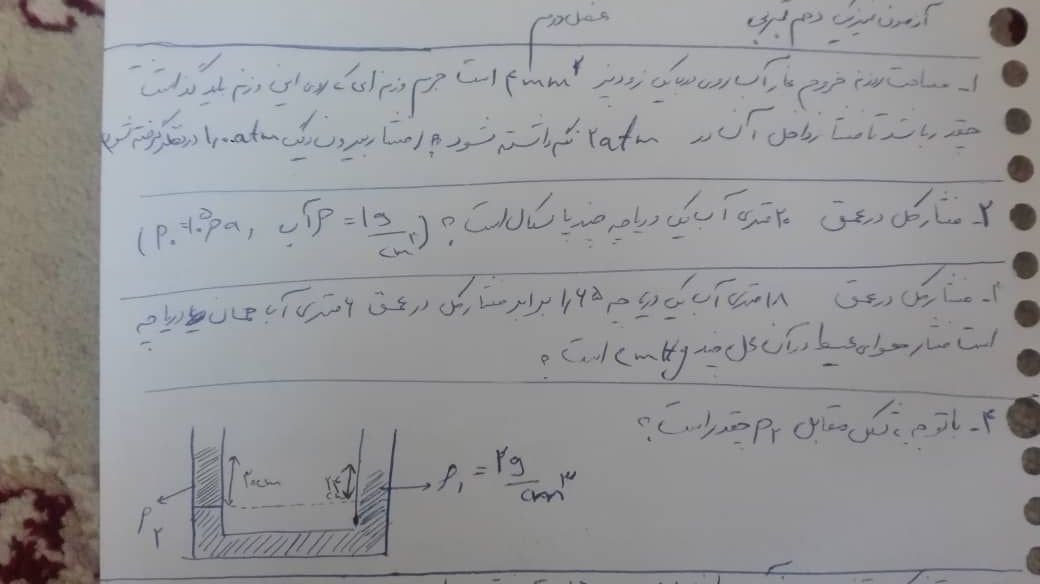 آزمون فیزیک دهم تجربی فصل دوم
۱- مساحت روزنه خروج بخار آب روی درب یک زودپز ۴mm² است جرم وزنه ای که روی این روزنه باید گذاشت
چقدر باشد تا فشار داخل آن در ۲atm نگه داشته شود ؟ فشار بیرون دیگ ۱٫۰۰atm در نظر گرفته شود
۲- فشار کل در عمق ۲۰ متری آب یک دریاچه چند پاسکال است ؟ (P₀=۱۰⁵Pa , ρ آب = 1g/cm³)
۳- فشار کل در عمق ۱۸ متری آب یک دریاچه ۱٫۶۵ برابر فشار کل در عمق ۶ متری آب همان دریاچه
است فشار هوای محیط در آن محل چند cmHg است ؟
۴- با توجه به شکل مقابل ρ₂ چقدر است ؟
۲۰cm
ρ₁ = ۲g/cm³
ρ₂